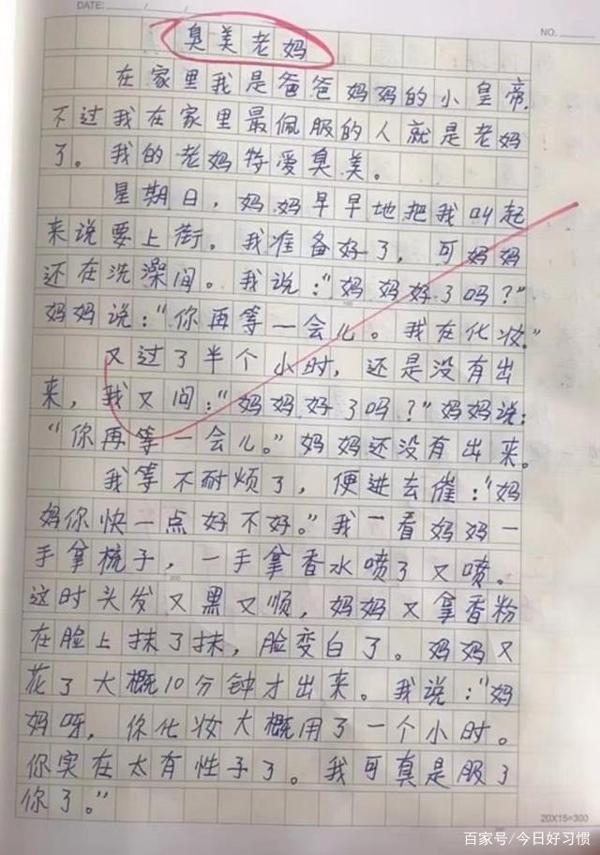 DATE: / /
NO.
臭美老妈
在家里我是爸爸妈妈的小皇帝.
不过我在家里最佩服的人就是老妈
了。我的老妈特爱臭美。
星期日，妈妈早早地把我叫起
来说要上街。我准备好了，可妈妈
还在洗澡间。我说：“妈妈好了吗？”
妈妈说：“你再等一会儿。我在化妆。”
又过了半个小时，还是没有出
来，我又问：“妈妈好了吗？”妈妈说：
“你再等一会儿。”妈妈还没有出来。
我等不耐烦了，便进去催：“妈
妈你快一点好不好。”我一看妈妈一
手拿梳子，一手拿香水喷了又喷。
这时头发又黑又顺，妈妈又拿香粉
在脸上抹了抹，脸变白了。妈妈又
花了大概10分钟才出来。我说：“妈
妈呀，你化妆大概用了一个小时。
你实在太有性子了。我可真是服了
你了。”
20X15=300
百家号/今日好习惯